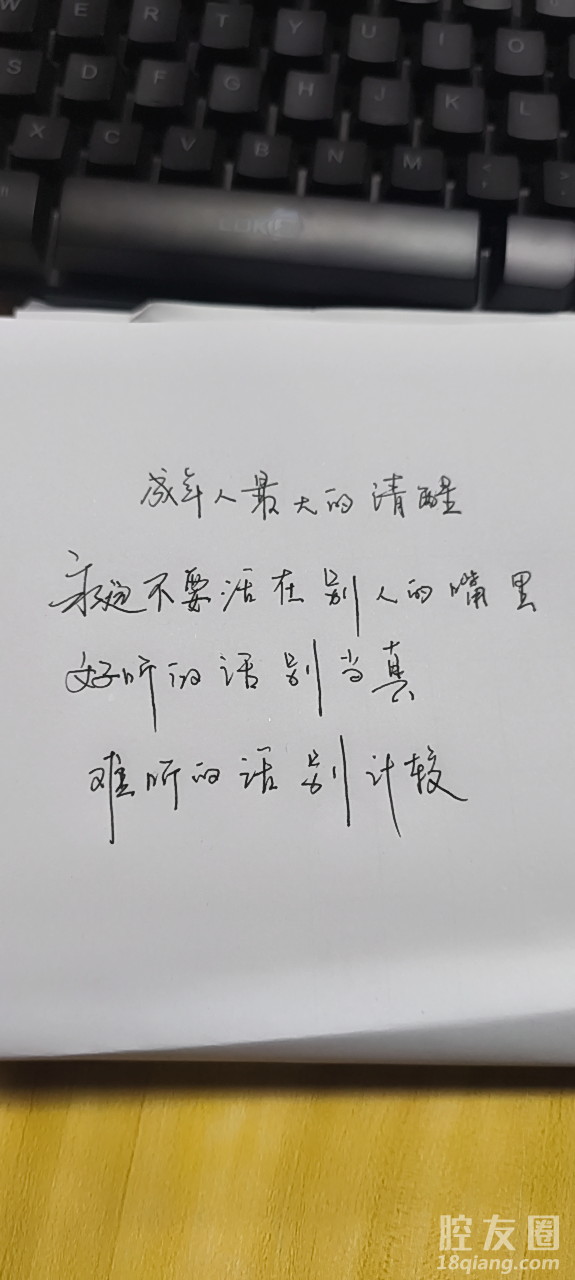 W E R T Y U I O
S D F G H J K L
X C V B N M < ,
成年人最大的清醒
永远不要活在别人的嘴里
好听的话别当真
难听的话别计较
腔友圈
18qiang.com